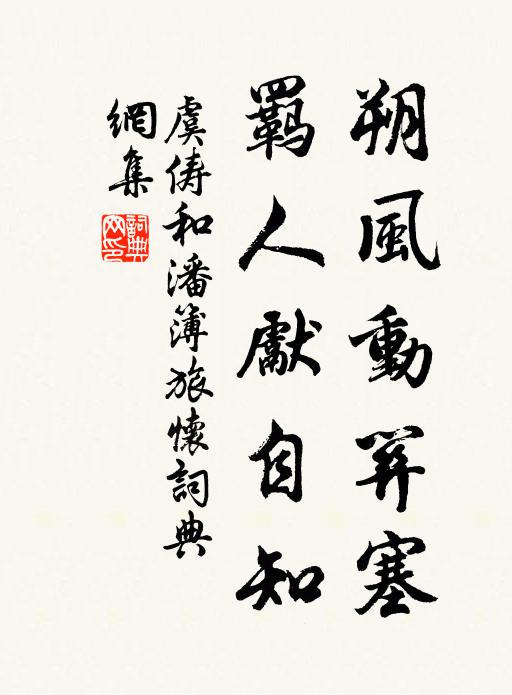 朔風動關塞
羈人獻自知
虞儔和潘簿旅懷詞典
網集
詞典网印